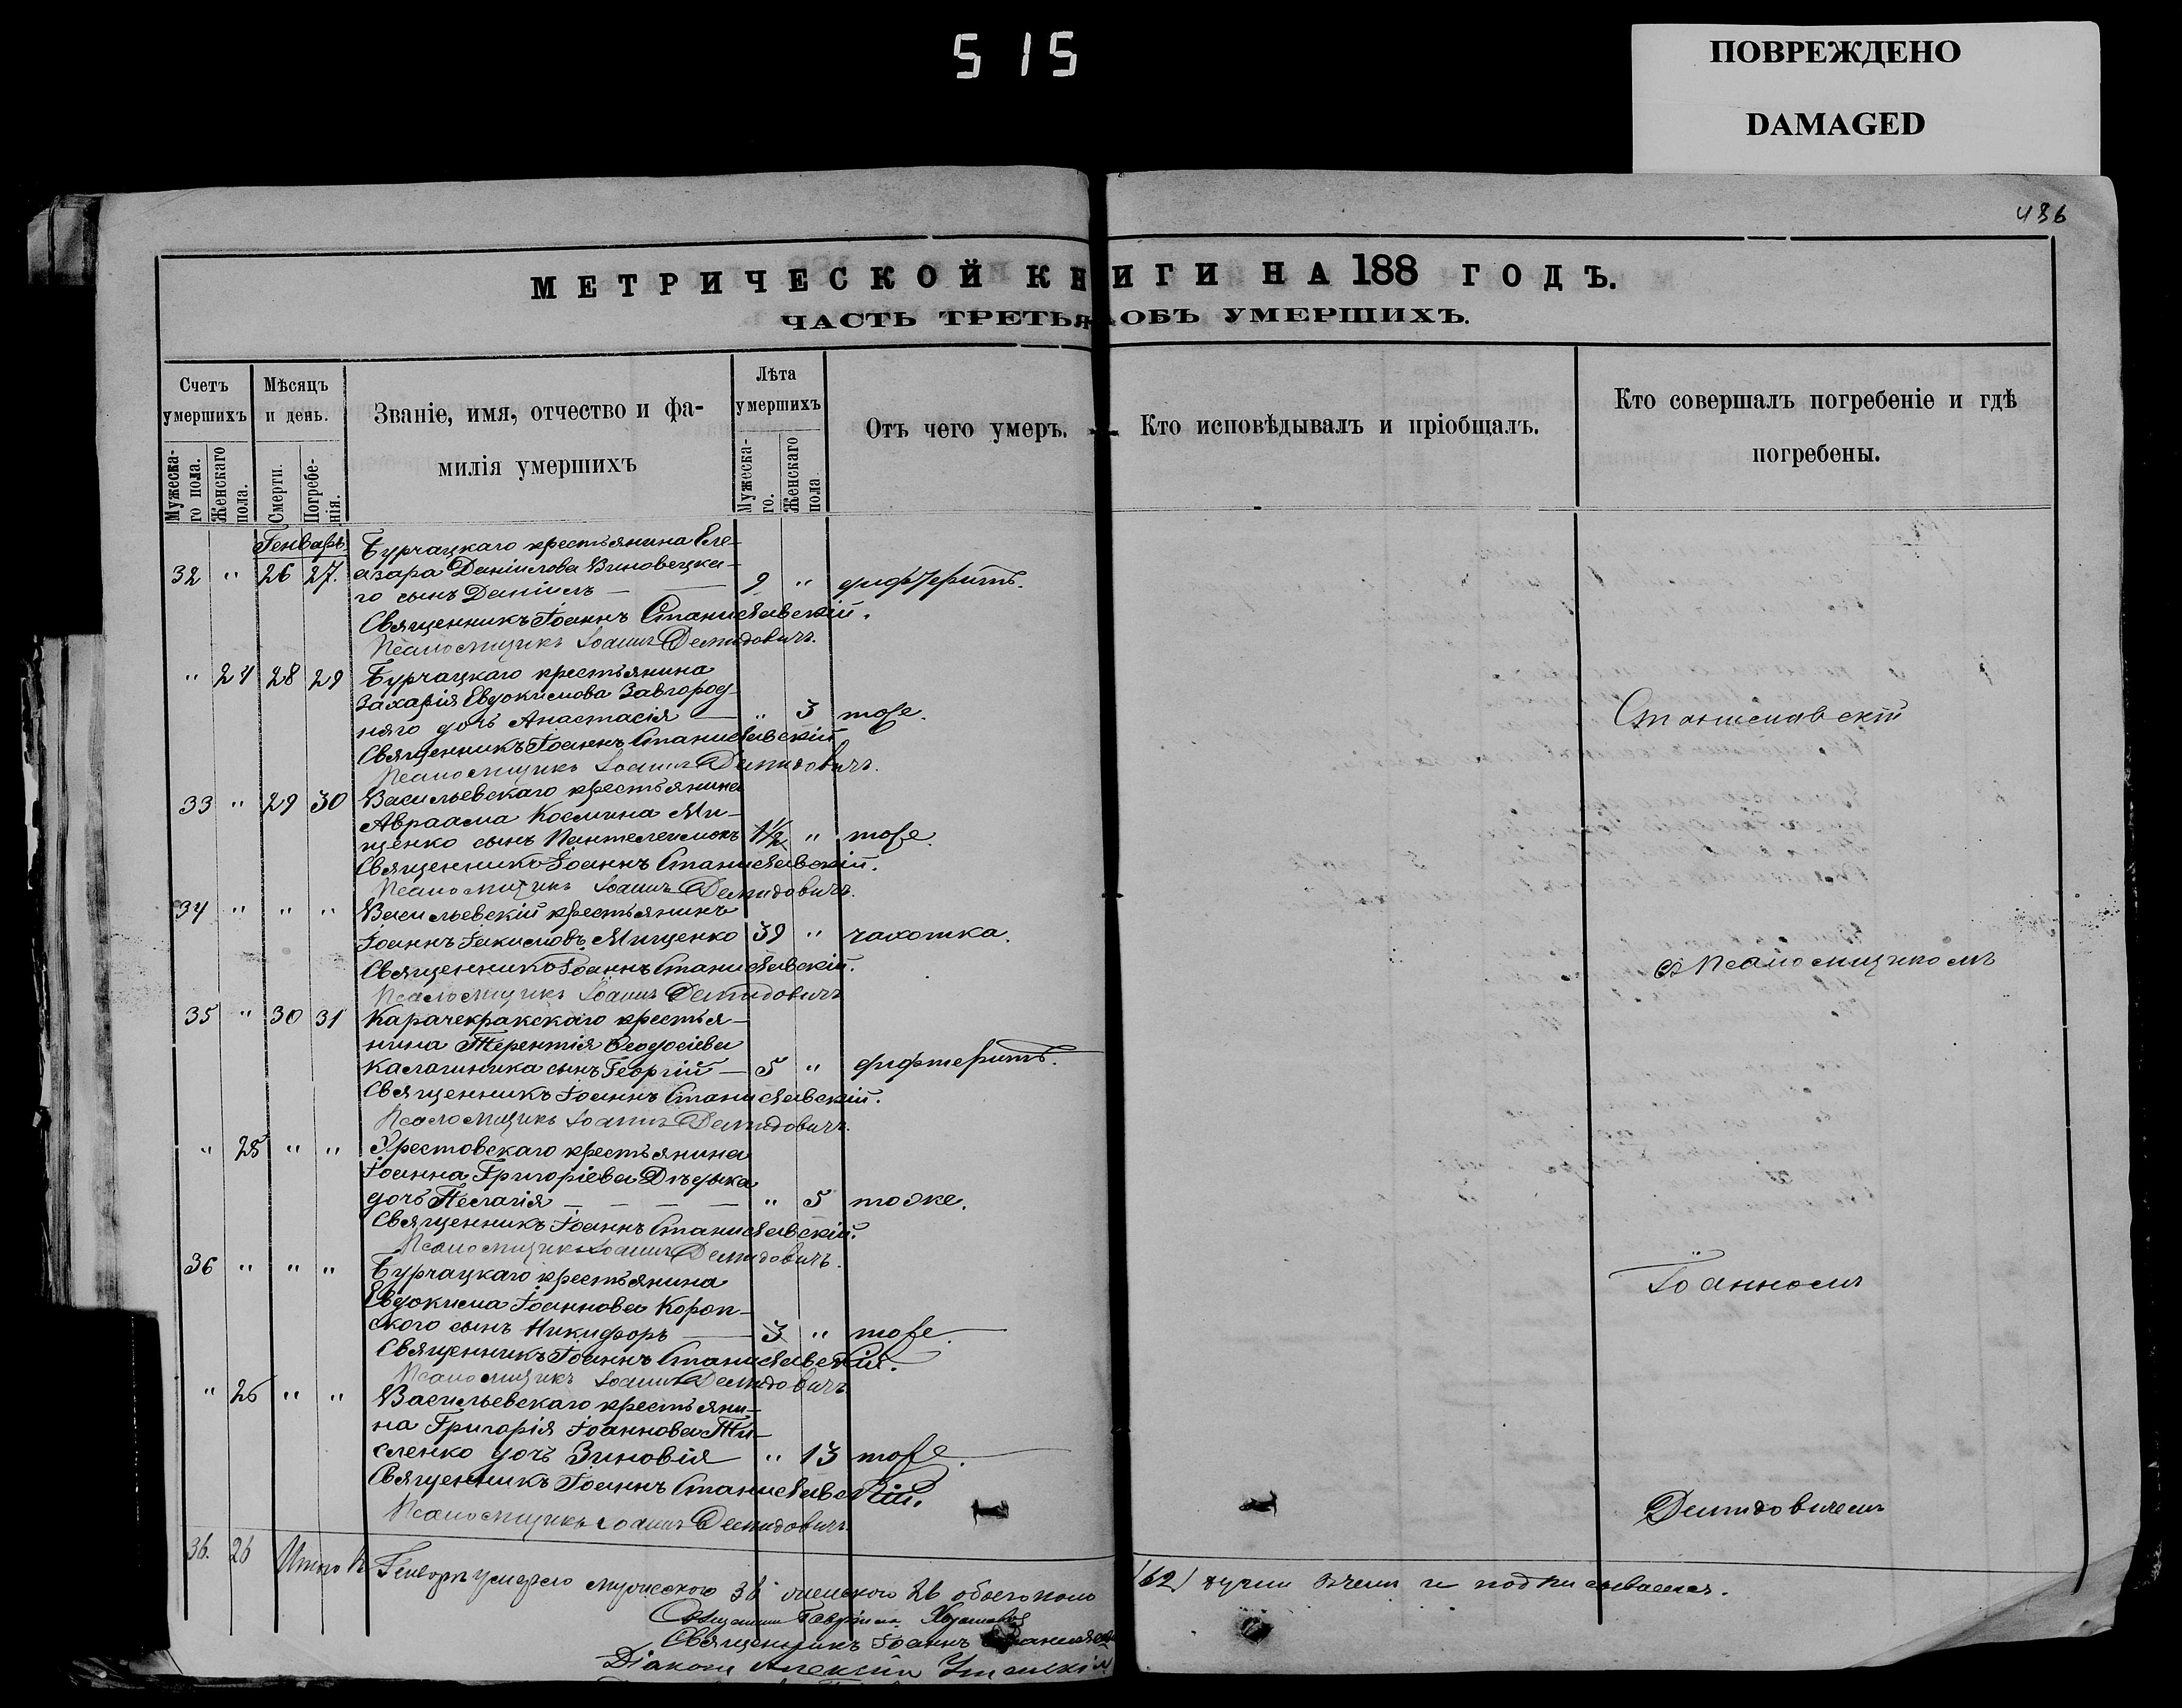 515
ПОВРЕЖДЕНО
DAMAGED
486
МЕТРИЧЕСКОЙ КНИГИ НА 188 ГОДЪ.
ЧАСТЬ ТРЕТЬЯ ОБЪ УМЕРШИХЪ.
Счетъ умершихъ
Мужеска-го пола.
Женскаго пола.
Мѣсяцъ и день.
Смерти.
Погребе-нія.
Званіе, имя, отчество и фа-
милія умершихъ
Лѣта умершихъ
Мужеска-го.
Женскаго пола
Отъ чего умеръ.
Кто исповѣдывалъ и пріобщалъ.
Кто совершалъ погребеніе и гдѣ
погребены.
Генварь
Бурчацкаго крестьянина Еле-
32 " 26 27. азара Даніилова Виновецка-
го сынъ Даніилъ — 9 " дифтеритъ.
Священникъ Іоаннъ Станиславскій.
Псаломщикъ Іоаннъ Демидовичъ.
" 24 28 29 Бурчацкаго крестьянина
Захарія Евдокимова Завгород-
няго дочь Анастасія — " 3 тоже.
Священникъ Іоаннъ Станиславскій
Псаломщикъ Іоаннъ Демидовичъ.
33 " 29 30 Васильевскаго крестьянина
Авраама Космина Ми-
щенко сынъ Пантелеимонъ 1½ " тоже.
Священникъ Іоаннъ Станиславскій.
Псаломщикъ Іоаннъ Демидовичъ.
34 " " " Васильевскій крестьянинъ
Іоаннъ Іакимовъ Мищенко 39 " чахотка.
Священникъ Іоаннъ Станиславскій.
Псаломщикъ Іоаннъ Демидовичъ
35 " 30 31 Карачекракскаго крестья-
нина Терентія Ѳеодосіева
Калашника сынъ Георгій — 5 " дифтеритъ.
Священникъ Іоаннъ Станиславскій.
Псаломщикъ Іоаннъ Демидовичъ.
" 25 " " Эрестовскаго крестьянина
Іоанна Григоріева Дѣдыка
дочь Пелагія — — — — " 5 тоже.
Священникъ Іоаннъ Станиславскій.
Псаломщикъ Іоаннъ Демидовичъ.
36 " " " Бурчацкаго крестьянина
Евдокима Іоаннова Короп-
ского сынъ Никифоръ — 3 " тоже.
Священникъ Іоаннъ Станиславскій.
Псаломщикъ Іоаннъ Демидовичъ
" 26 " " Васильевскаго крестьяни-
на Григорія Іоаннова Ти-
сленко дочь Зиновія " 13 тоже.
Священникъ Іоаннъ Станиславскій.
Псаломщикъ Іоаннъ Демидовичъ.
Станиславскій
съ Псаломщикомъ
Іоанномъ
Демидовичемъ
36. 26 Итого въ Генварѣ умерло мужеского 36 женского 26 обоего пола (62) душъ въ чемъ и подписываемся.
Священникъ Гавріилъ
Священникъ Іоаннъ
Діаконъ Алексій